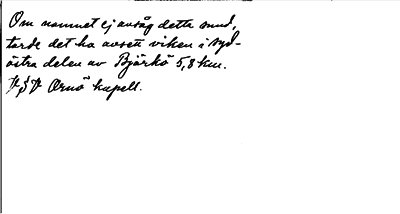 Om namnet ej avsåg detta sund,
torde det ha avsett viken i syd-
östra delen av Björkö 5,8 km.
VSV Ornö kapell.